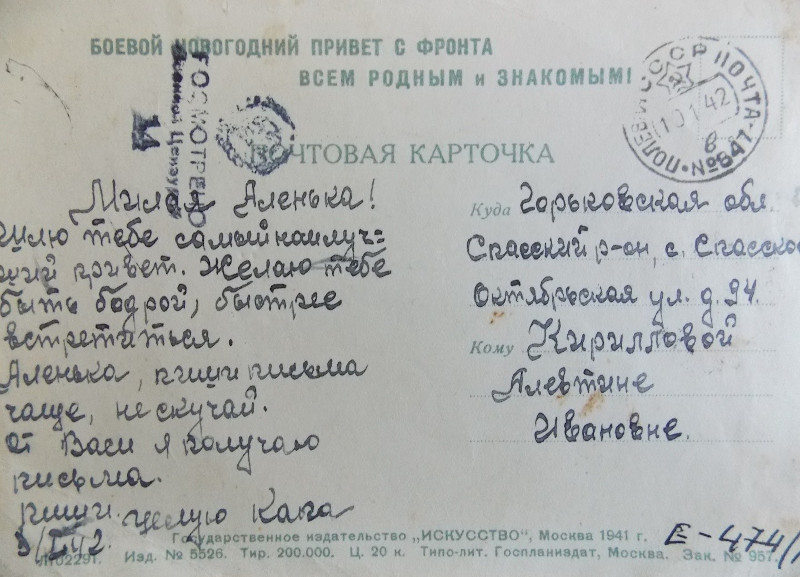 БОЕВОЙ НОВОГОДНИЙ ПРИВЕТ С ФРОНТА
ВСЕМ РОДНЫМ и ЗНАКОМЫМ!
ПРОСМОТРЕНО
Военной Цензурой
11
СССР ПОЧТА
ПОЛЕВАЯ
№547
10 1 42
в
ПОЧТОВАЯ КАРТОЧКА
Милая Аленька!
Шлю тебе самый наилуч=
ший привет. Желаю тебе
быть бодрой, быстрее
встретиться.
Аленька, пиши письма
чаще, не скучай.
от Васи я получаю
письма.
пиши. целую
Куда Горьковская обл.
Спасский р-он, с. Спасское
Октябрьская ул. д. 94.
Кому Кирилловой
Алевтине
Ивановне.
3/I 42.
Государственное издательство „ИСКУССТВО", Москва 1941 г.
Л102291. Изд. № 5526. Тир. 200.000. Ц. 20 к. Типо-лит. Госпланиздат, Москва. Зак. № 957.
Е-474/